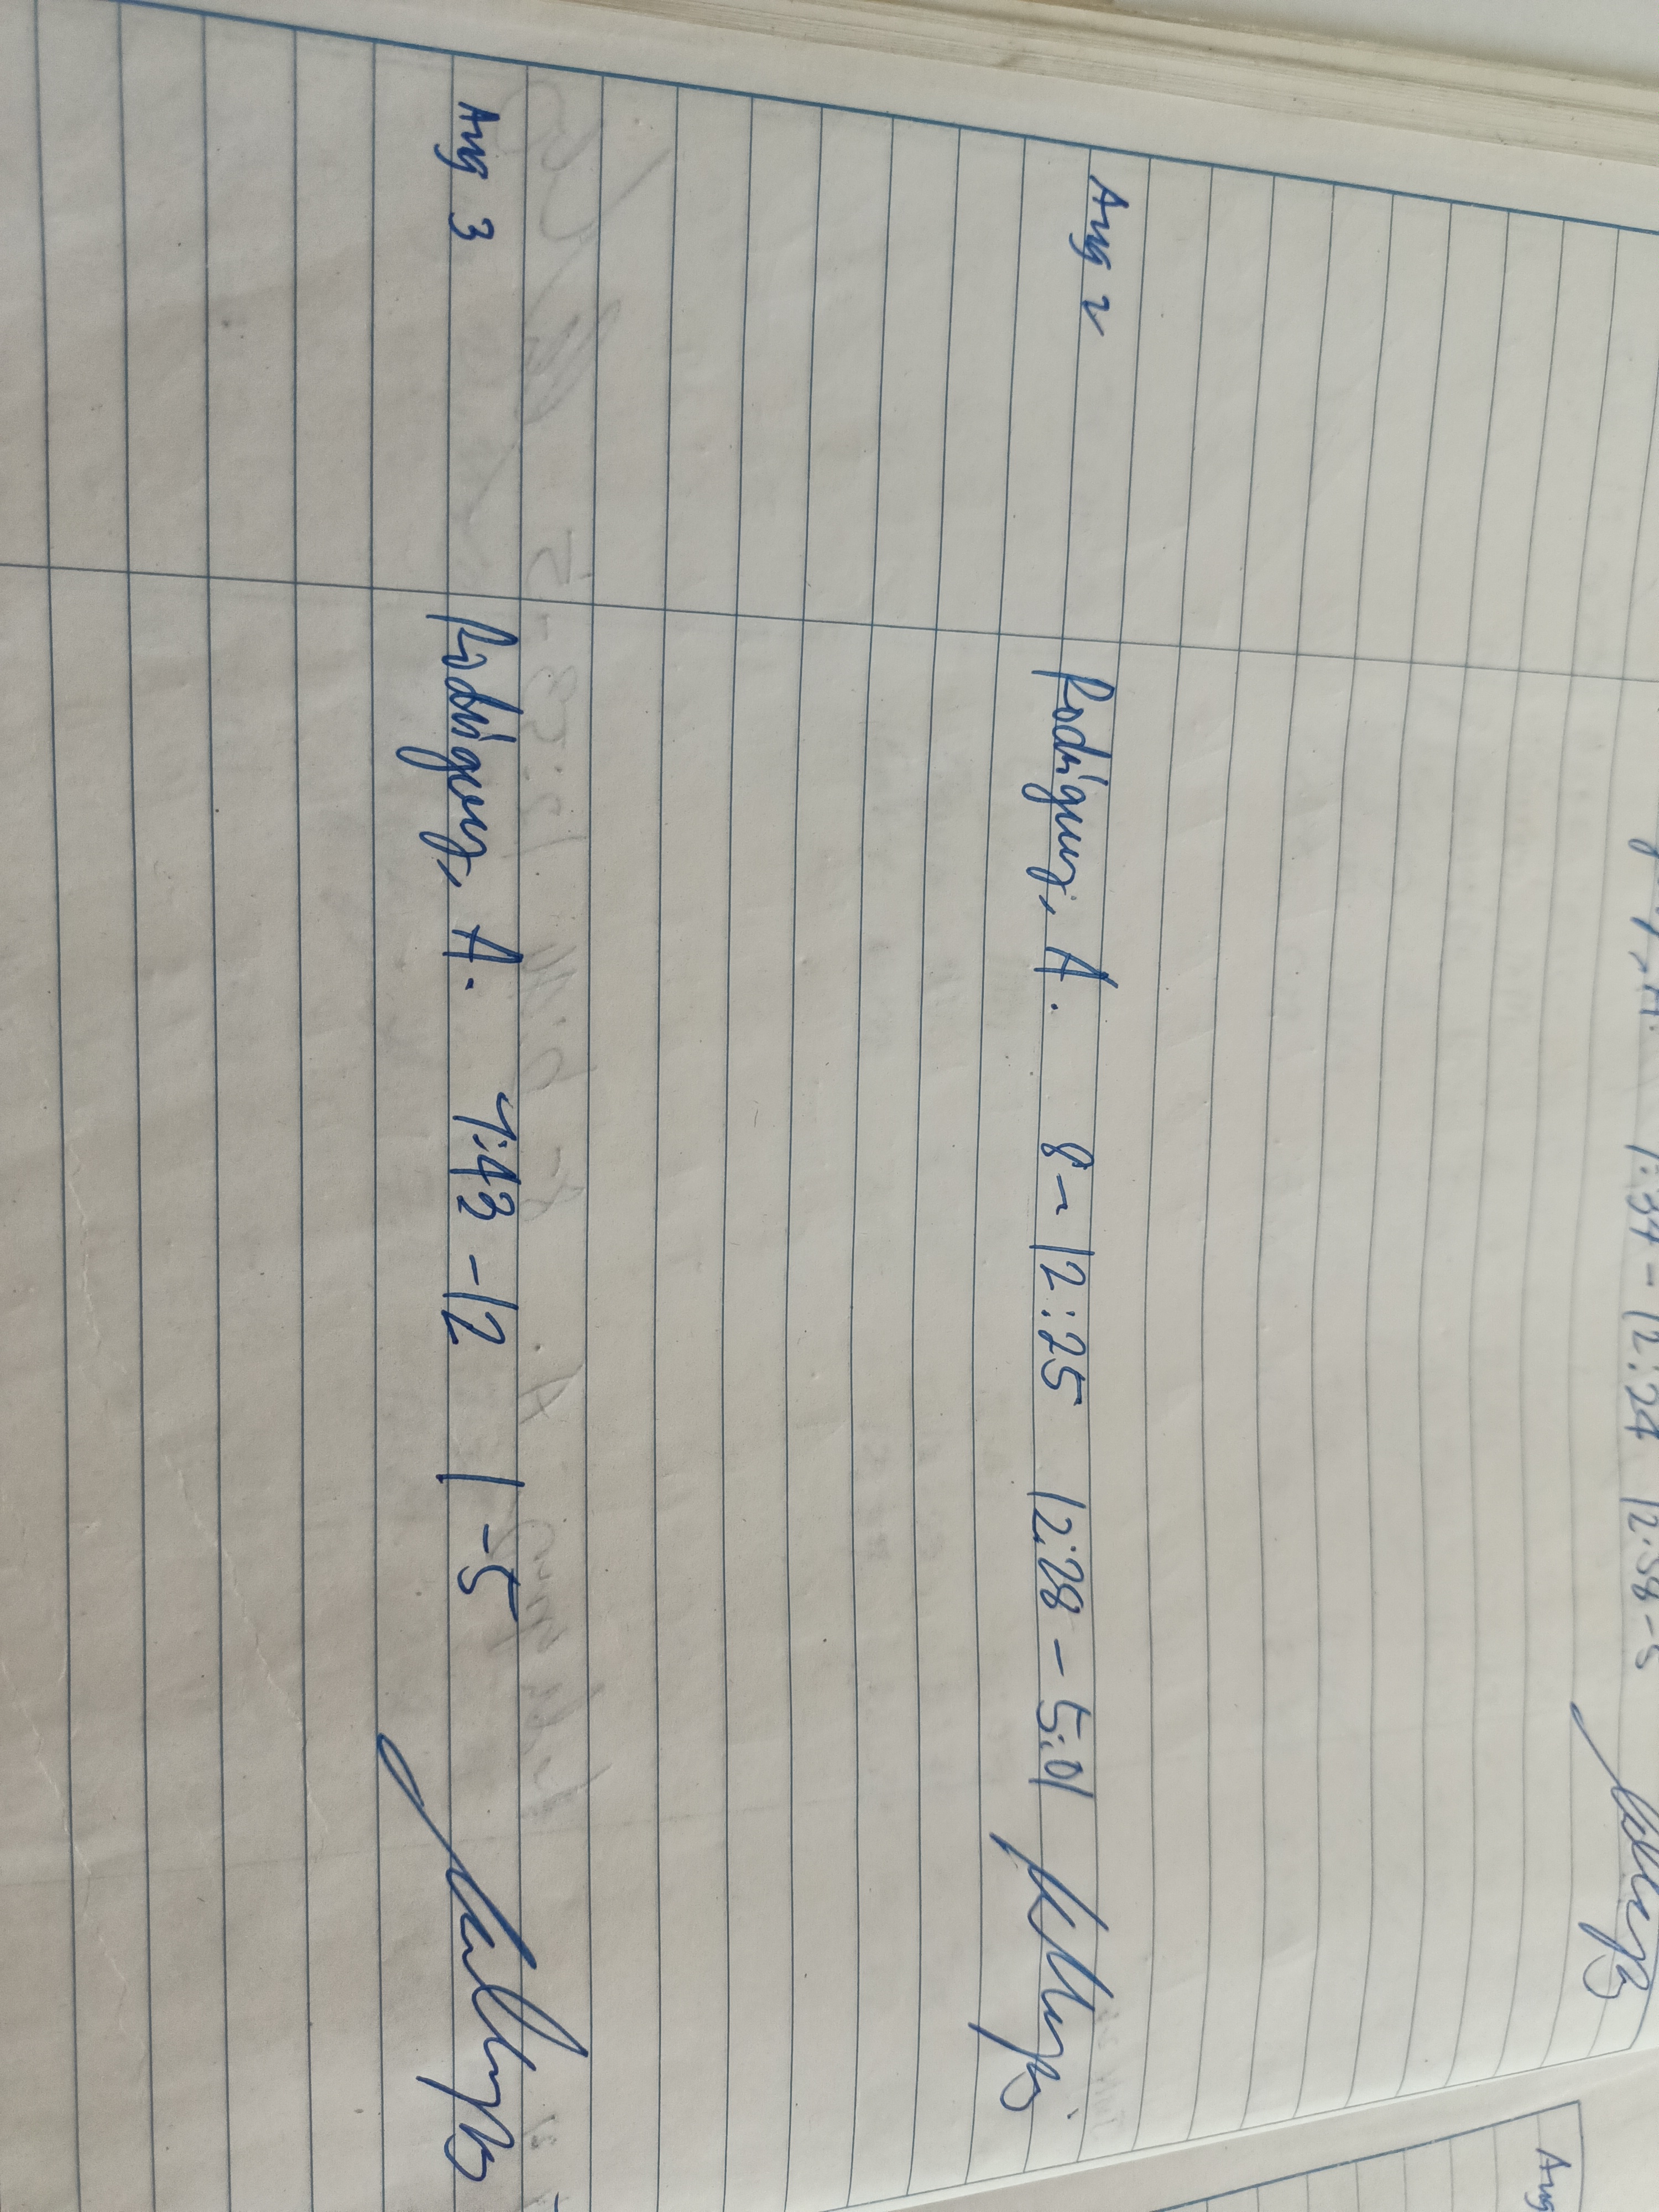 7:34 - 12:24 12:58 - 5
Aug 2 Rodriguez, A. 8 - 12:25 12:28 - 5:01
Aug 3 Rodriguez, A. 7:43 - 12 1 - 5
Aug